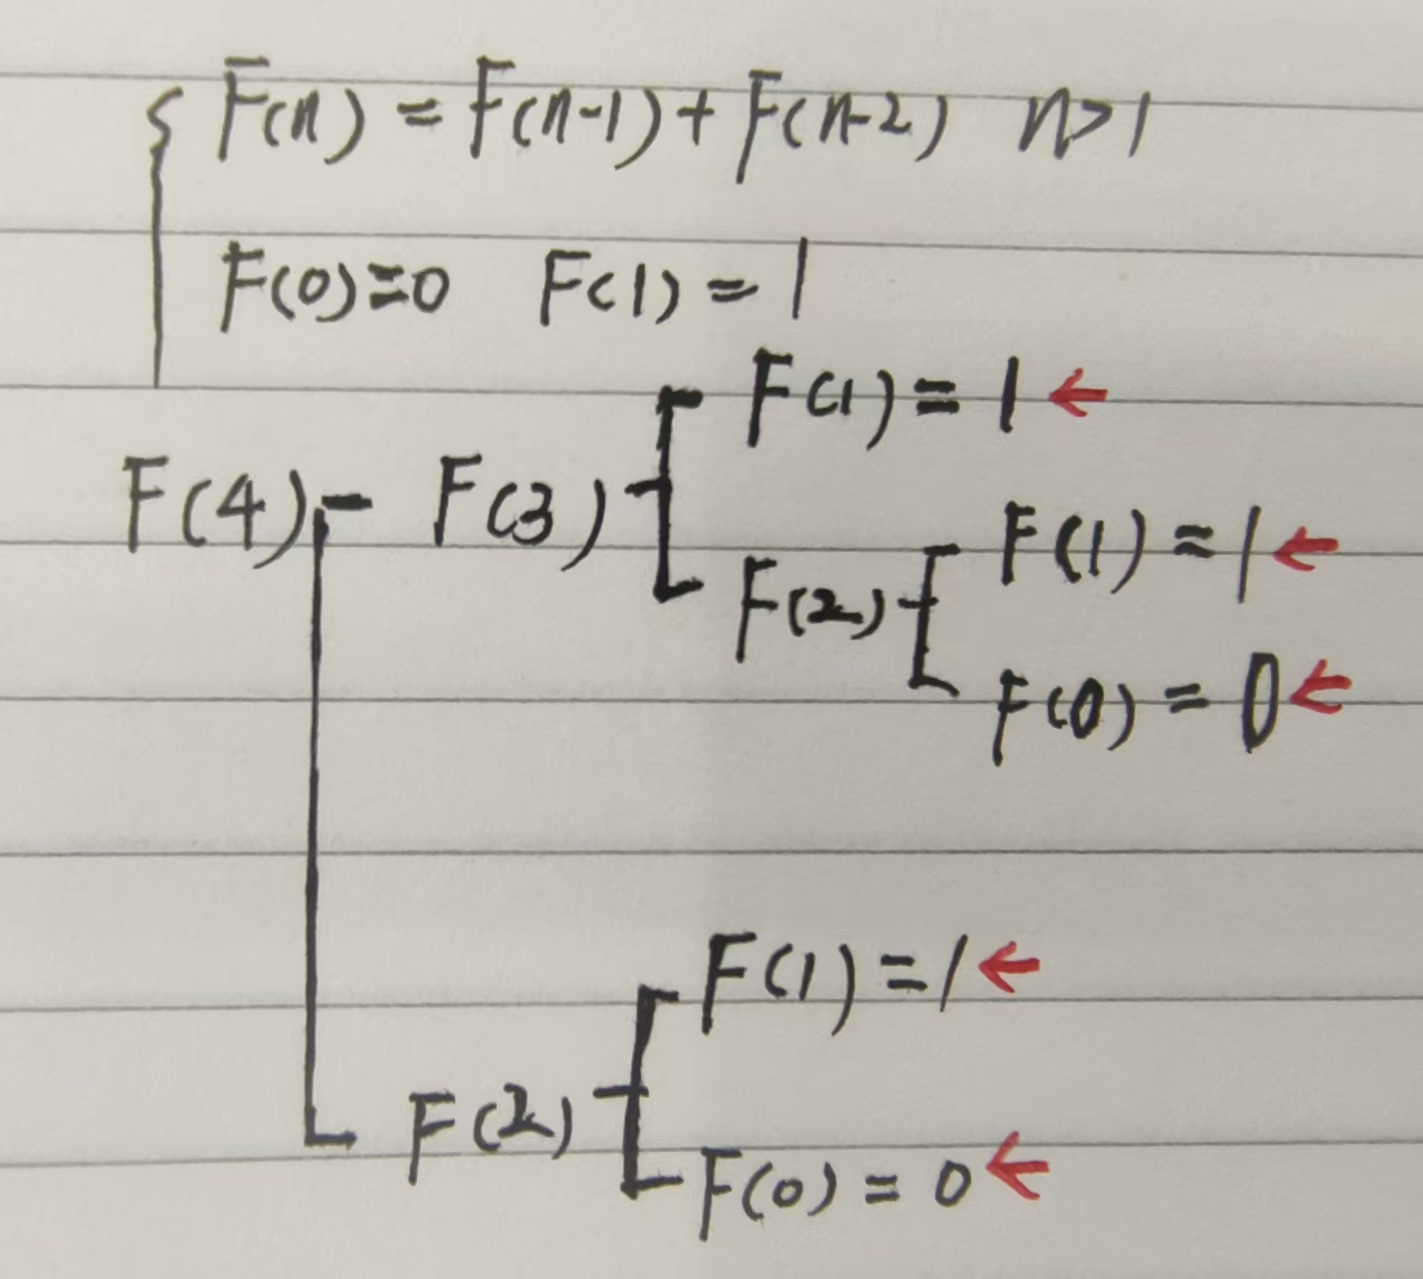 F(n) = F(n-1) + F(n-2) n>1
F(0)=0 F(1) = 1
F(1) = 1 ←
F(4) - F(3)
F(1) = 1 ←
F(2)
F(0) = 0 ←
F(1) = 1 ←
F(2)
F(0) = 0 ←